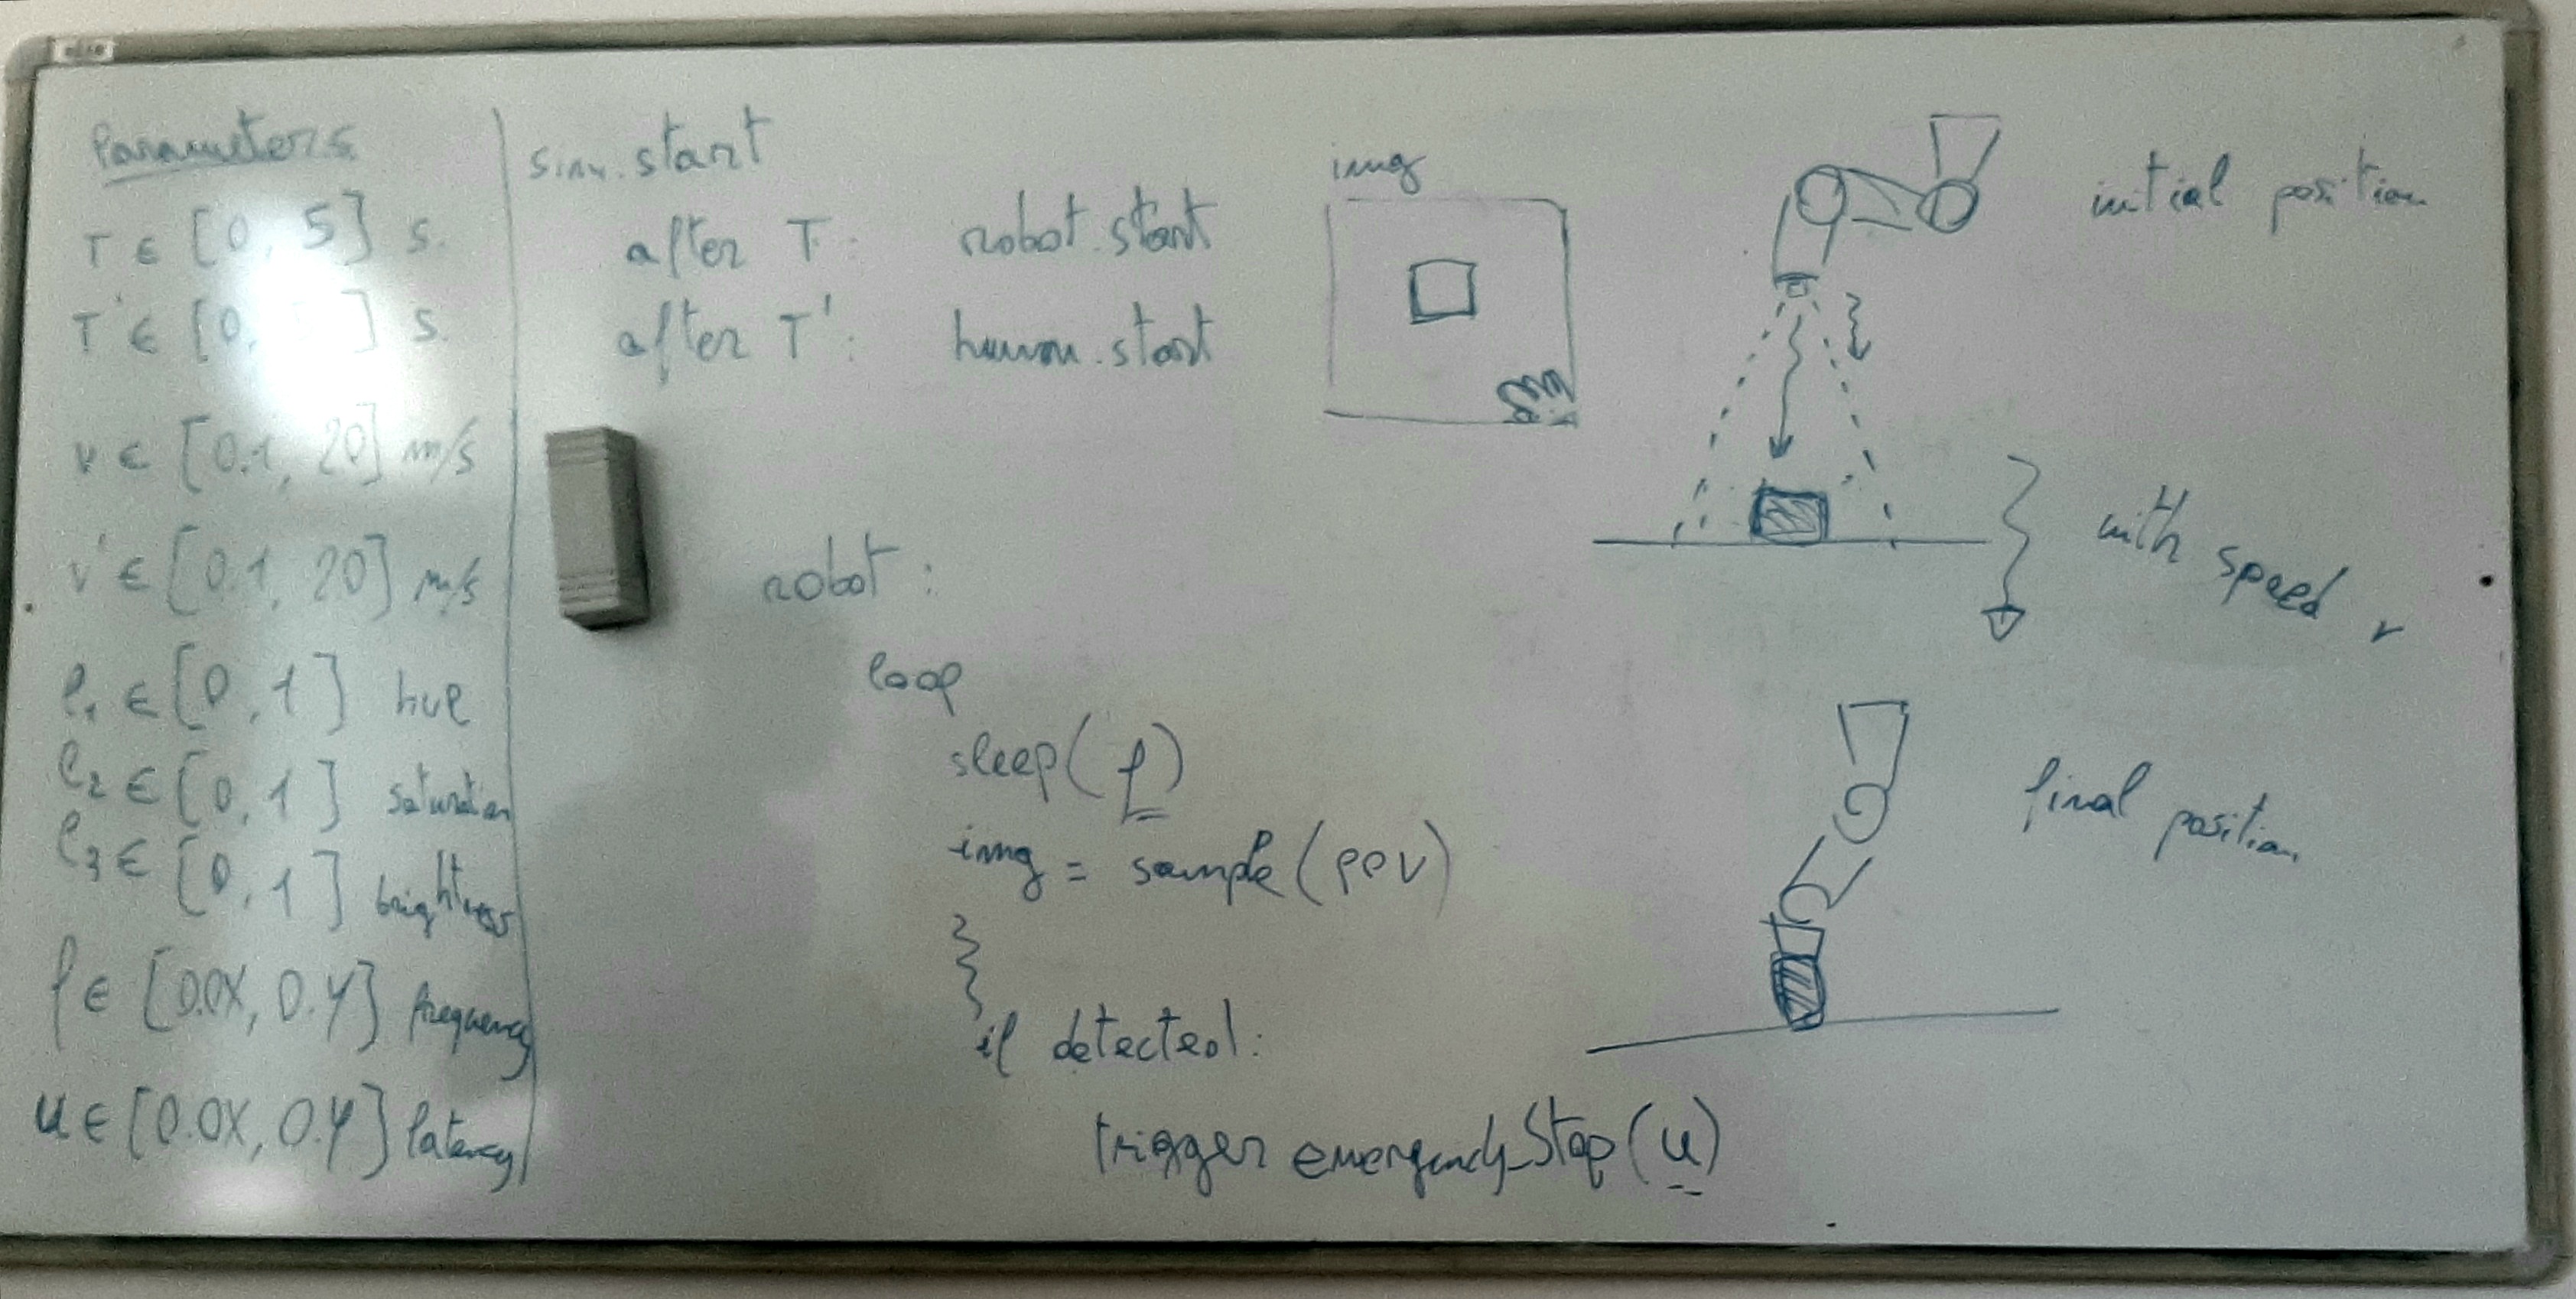 Parameters
T ∈ [0, 5] s.
T' ∈ [0, ] s.
v ∈ [0.1, 20] m/s
v' ∈ [0.1, 20] m/s
l₁ ∈ [0, 1] hue
l₂ ∈ [0, 1] saturation
l₃ ∈ [0, 1] brightness
f ∈ [0.0X, 0.Y] frequency
u ∈ [0.0X, 0.Y] latency
simu.start
after T: robot.start
after T': human.start
robot:
loop
sleep(f)
img = sample(POV)
if detected:
trigger emergency_Stop(u)
img
initial position
with speed v
final position